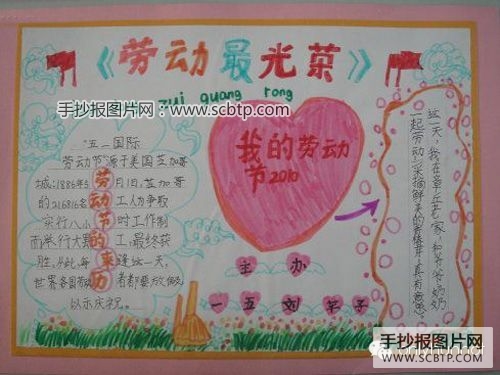 《劳动最光荣》
zui guang rong
手抄报图片网:www.scbtp.com
我的劳动
节2010
"五一国际
劳动节"源于美国芝加哥
城.1886年5月1日,芝加哥
的21.6816名工人为争取
实行八小时工作制
而举行大罢工,最终获
胜.从此,每逢这一天,
世界各国劳动者都要放假
以示庆祝。
劳动节的来历
这一天,我在章丘老家,和爷爷奶奶
一起劳动,采摘鲜美的香椿芽,真有意思。
主办
一五 刘 子
手抄报图片网
www.scbtp.com